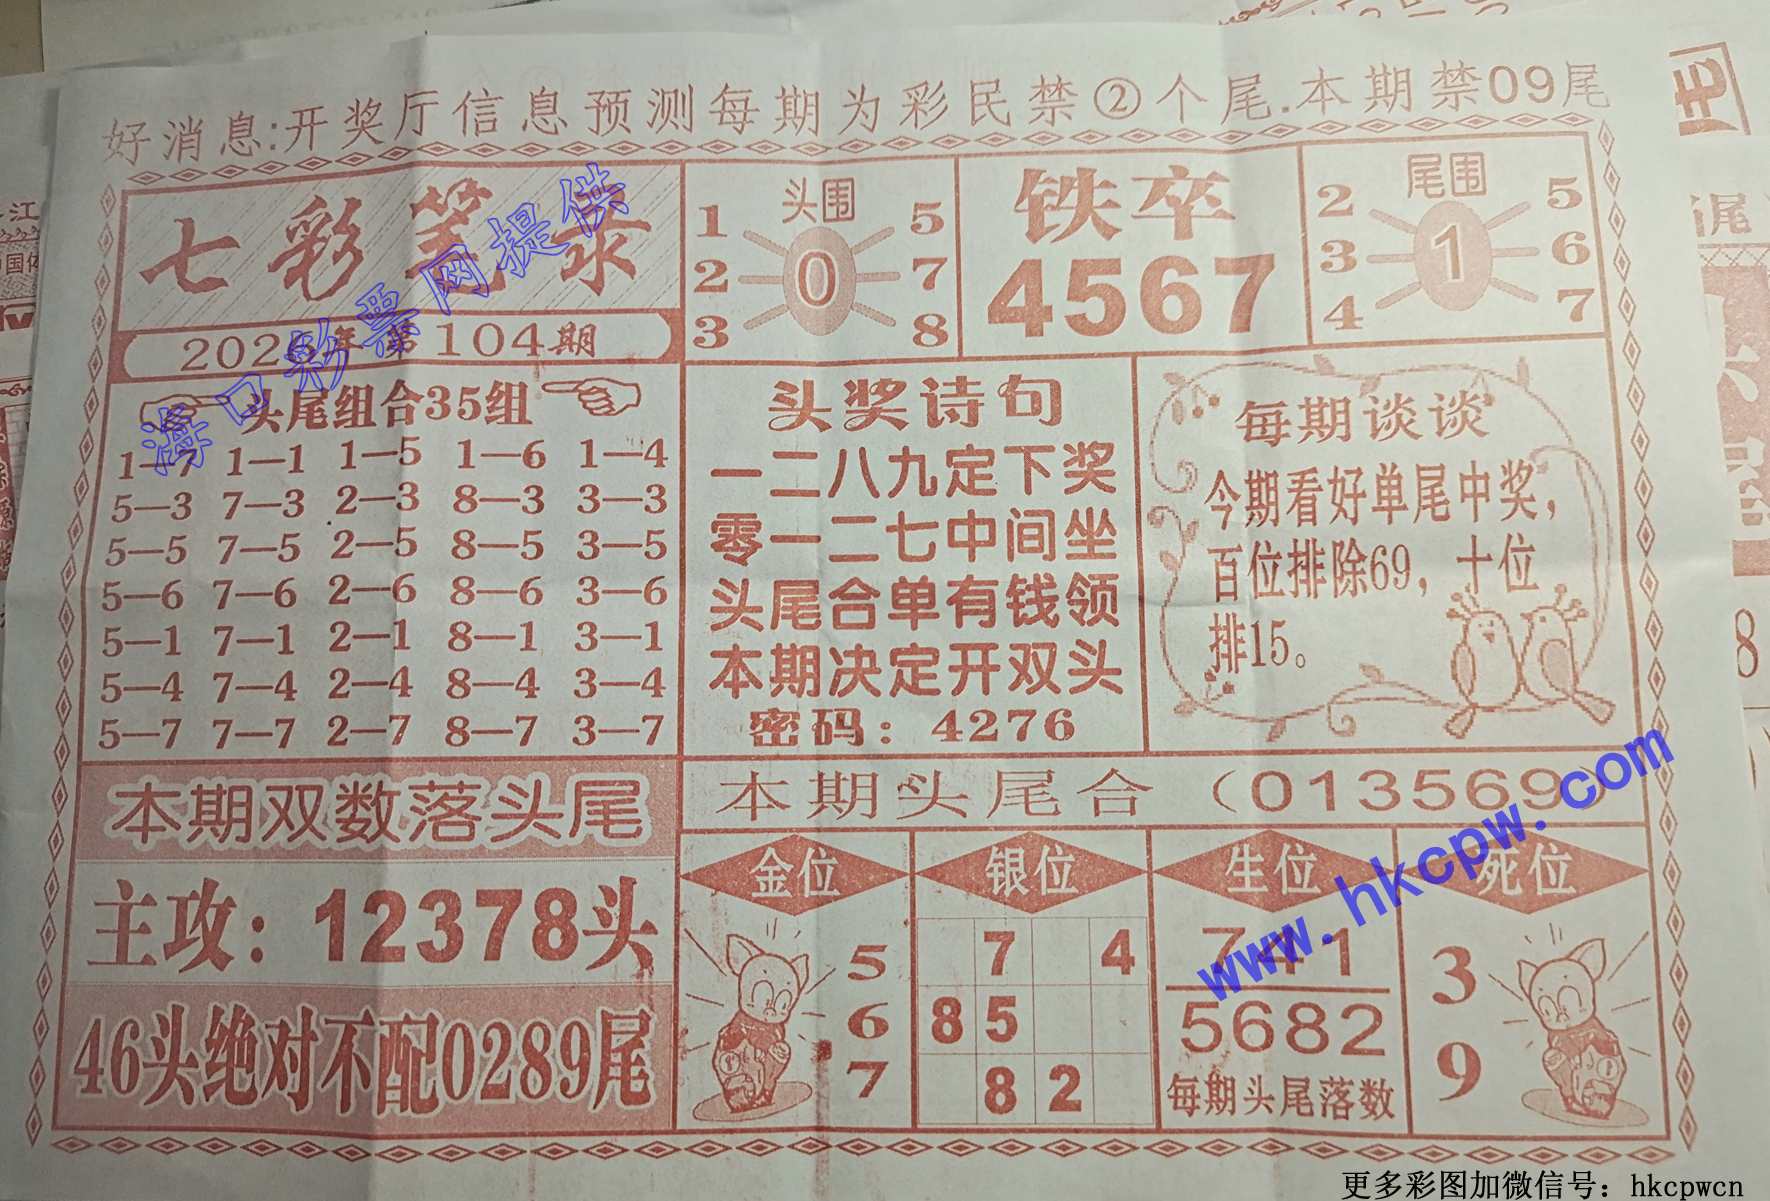 好消息:开奖厅信息预测每期为彩民禁②个尾.本期禁09尾
七彩笔录
第104期
头围
1 5
2 0 7
3 8
铁卒
4567
尾围
2 5
3 1 6
4 7
头尾组合35组
1—7 1—1 1—5 1—6 1—4
5—3 7—3 2—3 8—3 3—3
5—5 7—5 2—5 8—5 3—5
5—6 7—6 2—6 8—6 3—6
5—1 7—1 2—1 8—1 3—1
5—4 7—4 2—4 8—4 3—4
5—7 7—7 2—7 8—7 3—7
头奖诗句
一二八九定下奖
零一二七中间坐
头尾合单有钱领
本期决定开双头
密码：4276
每期谈谈
今期看好单尾中奖，
百位排除69，十位
排15。
本期双数落头尾
主攻：12378头
46头绝对不配0289尾
本期头尾合（013569）
金位
5
6
7
银位
7 4
8 5
8 2
生位
741
5682
每期头尾落数
死位
3
9
海口彩票网提供
www.hkcpw.com
更多彩图加微信号：hkcpwcn